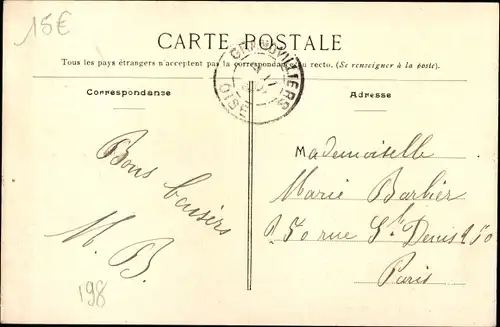 18€
CARTE POSTALE
Tous les pays étrangers n'acceptent pas la correspondance au recto. (Se renseigner à la poste).
GRANDVILLIERS
OISE
Correspondanse
Adresse
Bons baisers
M. B.
198
Mademoiselle
Marie Barbier
rue St Denis 250
Paris